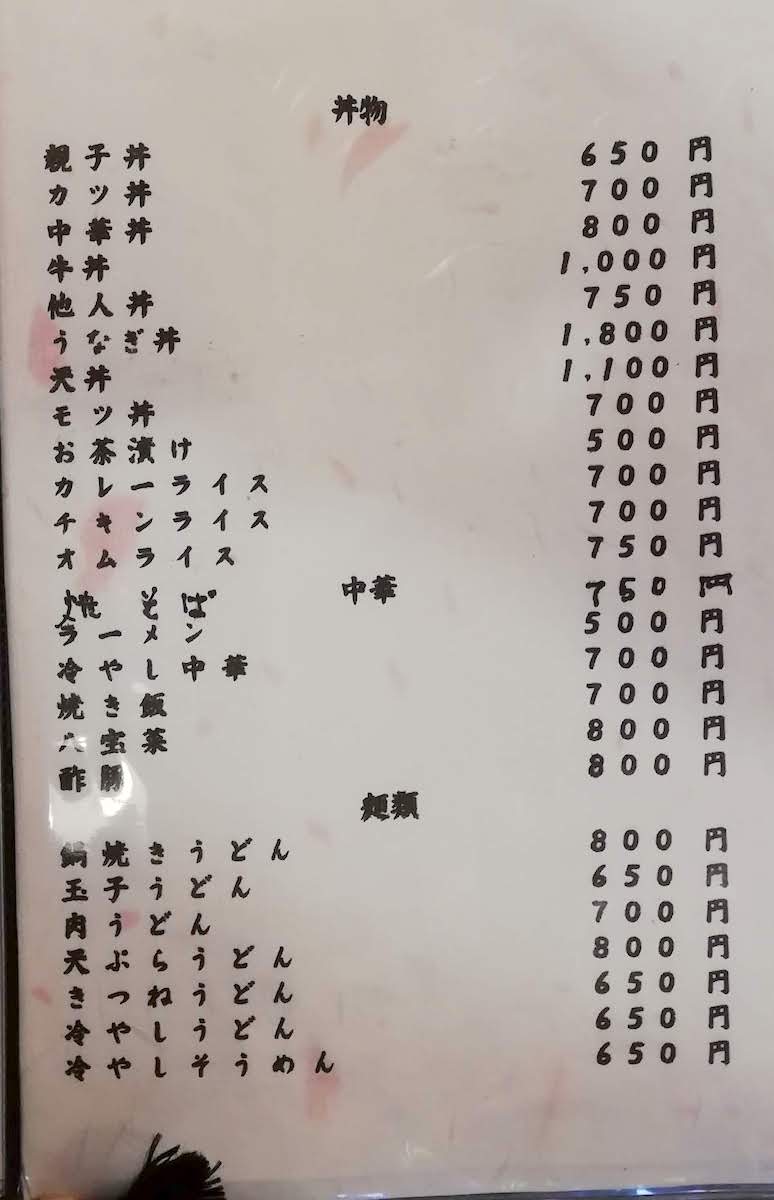 丼物
親子丼 650円
カツ丼 700円
中華丼 800円
牛丼 1,000円
他人丼 750円
うなぎ丼 1,800円
天丼 1,100円
モツ丼 700円
お茶漬け 500円
カレーライス 700円
チキンライス 700円
オムライス 750円
中華
焼そば 750円
ラーメン 500円
冷やし中華 700円
焼き飯 700円
八宝菜 800円
酢豚 800円
麺類
鍋焼きうどん 800円
玉子うどん 650円
肉うどん 700円
天ぷらうどん 800円
きつねうどん 650円
冷やしうどん 650円
冷やしそうめん 650円